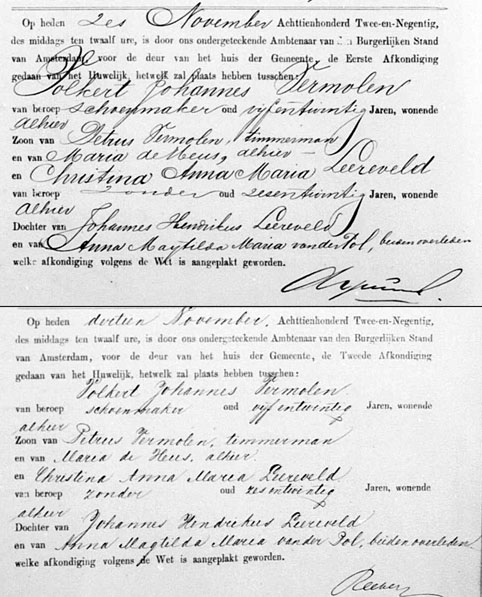 Op heden zes November Achttienhonderd Twee-en-Negentig,
des middags ten twaalf ure, is door ons ondergeteekende Ambtenaar van den Burgerlijken Stand
van Amsterdam, voor de deur van het huis der Gemeente, de Eerste Afkondiging
gedaan van het Huwelijk, hetwelk zal plaats hebben tusschen:
Volkert Johannes Vermolen
van beroep schoenmaker oud vijfentwintig Jaren, wonende
alhier
Zoon van Petrus Vermolen, timmerman
en van Maria de Heus, alhier
en Christina Anna Maria Leereveld
van beroep zonder oud zesentwintig Jaren, wonende
alhier
Dochter van Johannes Hendrikus Leereveld
en van Anna Magtilda Maria van der Pol, beiden overleden
welke afkondiging volgens de Wet is aangeplakt geworden.
Op heden dertien November, Achttienhonderd Twee-en-Negentig,
des middags ten twaalf ure, is door ons ondergeteekende Ambtenaar van den Burgerlijken Stand
van Amsterdam, voor de deur van het huis der Gemeente, de Tweede Afkondiging
gedaan van het Huwelijk, hetwelk zal plaats hebben tusschen:
Volkert Johannes Vermolen
van beroep schoenmaker oud vijfentwintig Jaren, wonende
alhier
Zoon van Petrus Vermolen, timmerman
en van Maria de Heus, alhier
en Christina Anna Maria Leereveld
van beroep zonder oud zesentwintig Jaren, wonende
alhier
Dochter van Johannes Hendrikus Leereveld
en van Anna Magtilda Maria van der Pol, beiden overleden
welke afkondiging volgens de Wet is aangeplakt geworden.